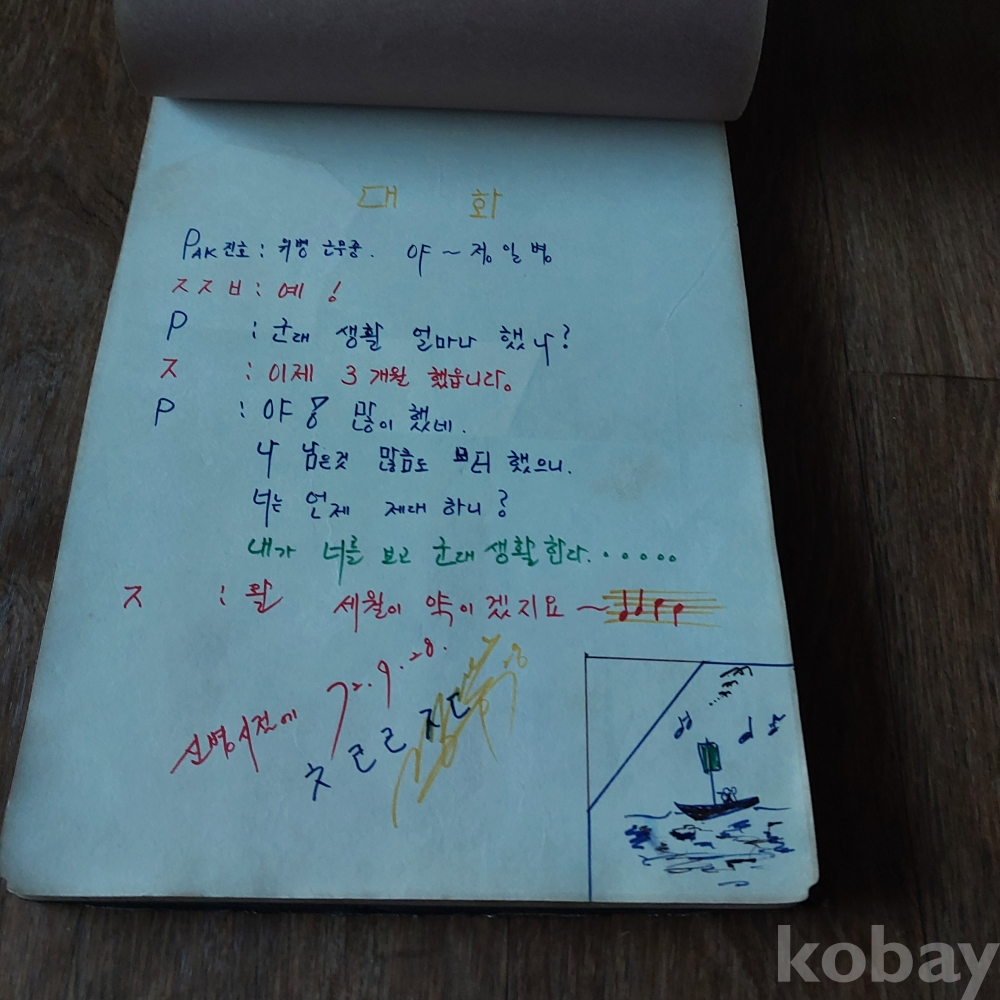 대 화
PAK 진호 : 위병 근무중. 야 ~ 정일병
ㅈㅈㅂ : 예 !
P : 군대 생활 얼마나 했나?
ㅈ : 이제 3개월 했읍니다.
P : 야 많이 했네.
나 남은것 많큼도 못 했으니.
너는 언제 제대 하니?
내가 너를 보고 군대생활 한다......
ㅈ : 왈 세월이 약이겠지요 ~
72. 9. 28.
신병시절에
kobay